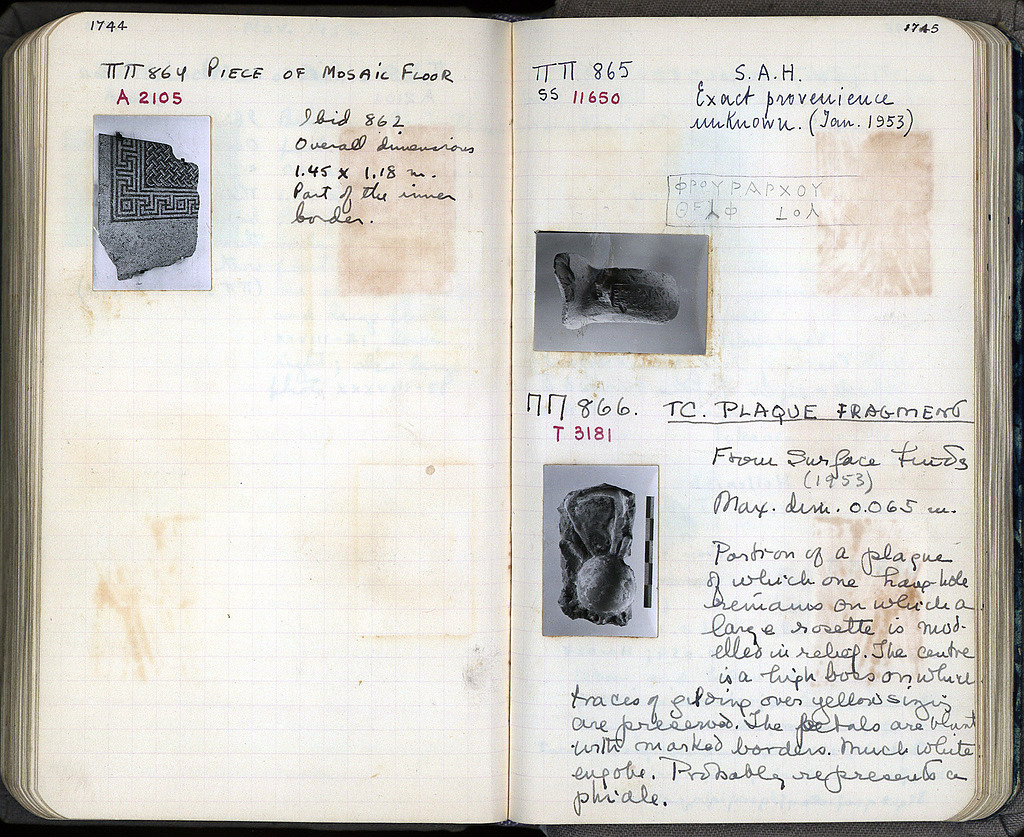 1744
ΠΠ 864 PIECE OF MOSAIC FLOOR
A 2105
Ibid 862
Overall dimensions
1.45 x 1.18 m.
Part of the inner
border.
1745
ΠΠ 865 S.A.H.
SS 11650 Exact provenience
unknown. (Jan. 1953)
ΦΡΟΥΡΑΡΧΟΥ
ΠΠ 866. TC. PLAQUE FRAGMENT
T 3181
From Surface Finds
(1953)
Max. dim. 0.065 m.
Portion of a plaque
of which one hang-hole
remains on which a
large rosette is mod-
elled in relief. The centre
is a high boss on which
traces of gilding over yellow sizing
are preserved. The petals are blunt
with marked borders. Much white
engobe. Probably represents a
phiale.